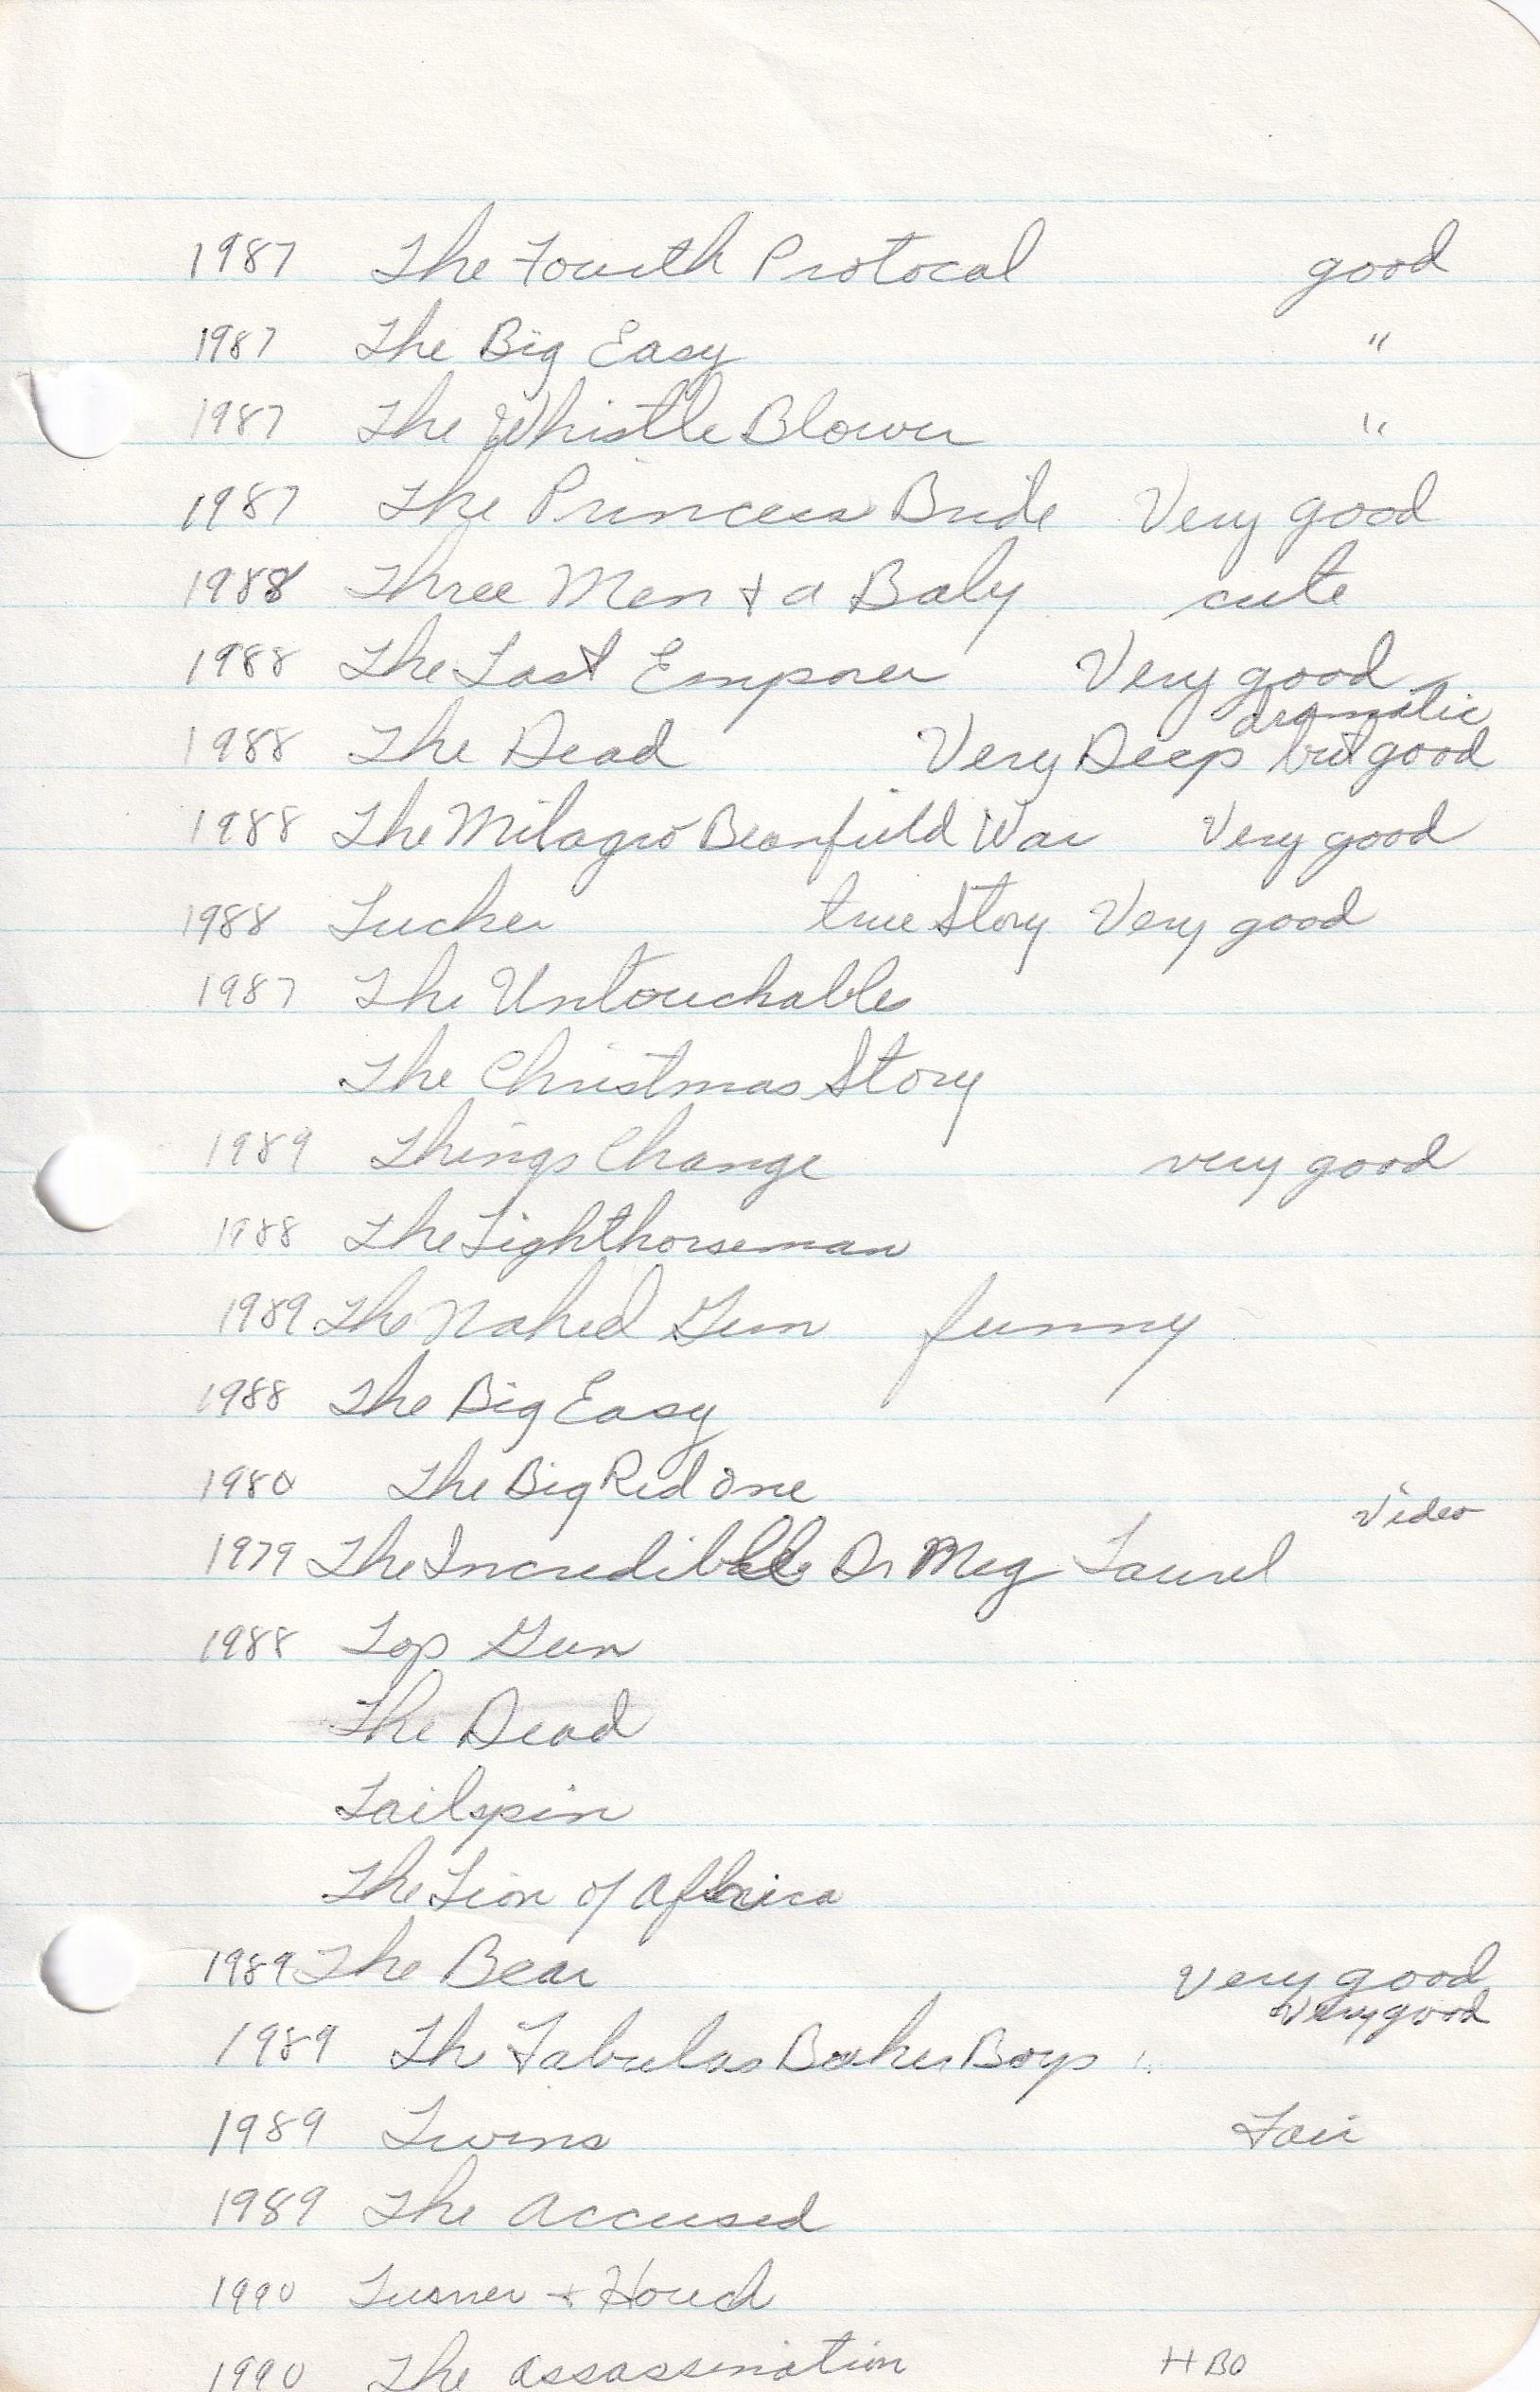 1987 The Fourth Protocal good
1987 The Big Easy "
1987 The Whistle Blower "
1987 The Princess Bride Very good
1988 Three Men + a Baby cute
1988 The Last Emporer Very good
dramatic
1988 The Dead Very Deep but good
1988 The Milagro Beanfield War Very good
1988 Tucker true Story Very good
1987 The Untouchables
The Christmas Story
1989 Things Change very good
1988 The Lighthorseman
1989 The Naked Gun funny
1988 The Big Easy
1980 The Big Red One
Video
1979 The Incredible Dr Meg Laurel
1988 Top Gun
The Dead
Tailspin
The Lion of Africa
1989 The Bear Very good
Very good
1989 Th Fabulas Baker Boys
1989 Twins Fair
1989 The Accused
1990 Turner + Houch
1990 The Assassination HBO